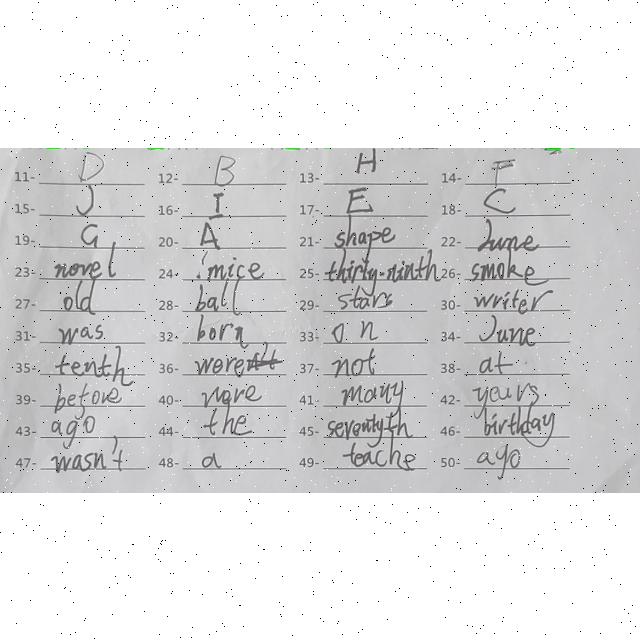 11- D 12- B 13- H 14- F
15- J 16- I 17- E 18- C
19- G 20- A 21- shape 22- June
23- novel 24- mice 25- thirty-ninth 26- smoke
27- old 28- ball 29- stars 30- writer
31- was 32- born 33- on 34- June
35- tenth 36- were 37- not 38- at
39- before 40- more 41- many 42- years
43- ago 44- the 45- seventyth 46- birthday
47- wasn't 48- a 49- teache 50- ago